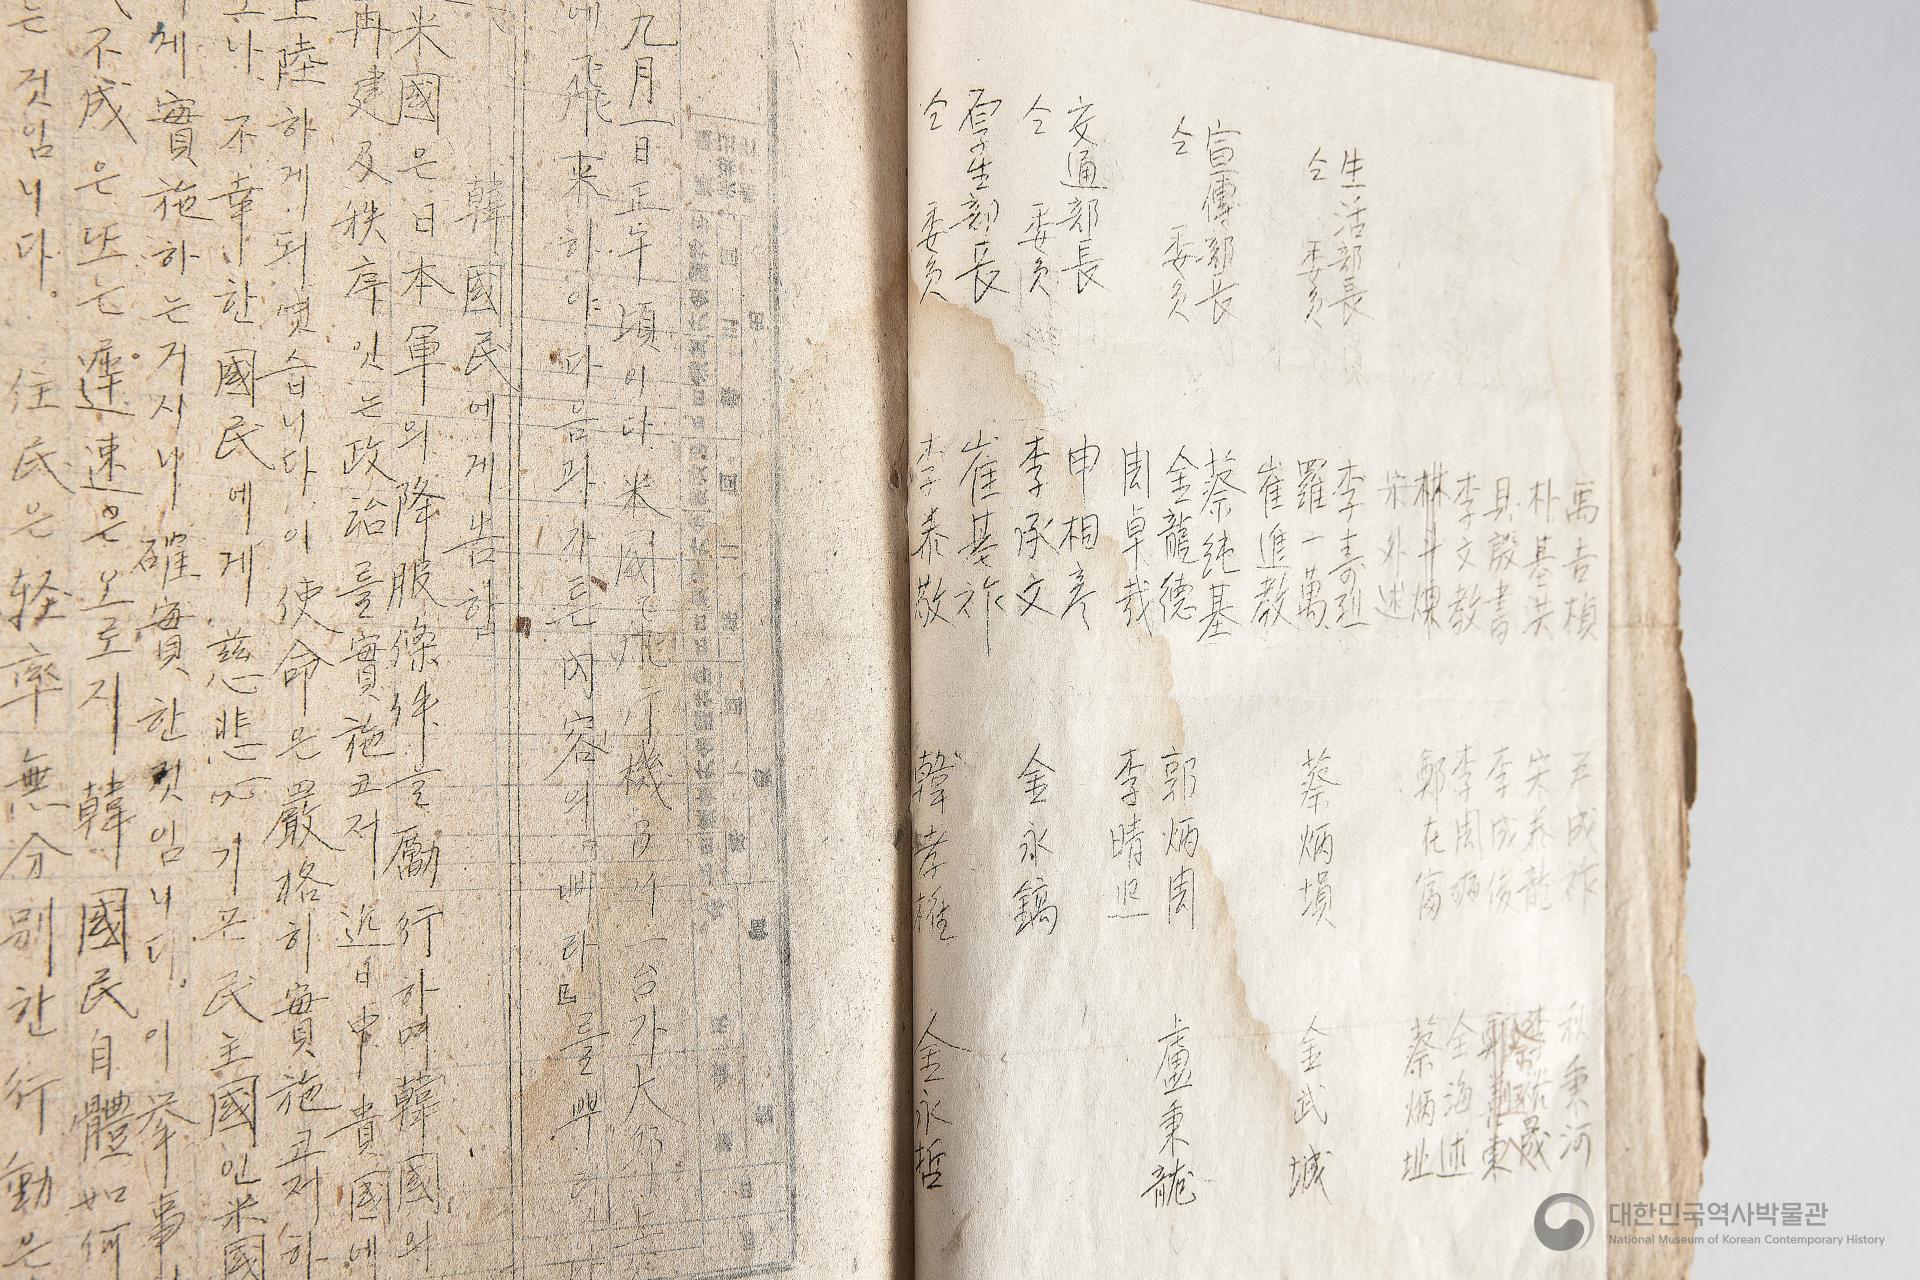 禹吉楨 秋秉河
朴基洪 宋泰龍
具殷書 李成俊
李文敎 李周 全海述
林斗 鄭在富 蔡炳址
宋外述
生活部長 李壽
仝 委員 羅一萬 蔡炳塤 金武城
崔進敎
宣傳部長 蔡純基
仝 委員 金龍德 郭炳周 盧秉龍
周卓哉 李晴
交通部長 申相彦
仝 委員 李承文 金永鎬
厚生部長 崔基祚
仝 委員 李泰敬 韓孝 金永哲
九月一日正午頃이다 米國飛行機 一台가 大邱
에 飛來하야 다음과 가튼 內容의 삐라를 뿌
韓國民에게 告함
米國은 日本軍의 降服條件을 勵行하며 韓國의
再建及秩序잇는 政治를 實施코저 近日中 貴國에
上陸하게 되엿습니다 이 使命은 嚴格히 實施코저 하
나 不幸한 國民에게 慈悲心기픈 民主國인 米國
에 實施하는 거시니 確實한 것임니다. 이 擧事
不成은 또는 遲速은 오로지 韓國民自體如何
는 것임니다. 住民은 輕率無分別한 行動은
대한민국역사박물관
National Museum of Korean Contemporary History